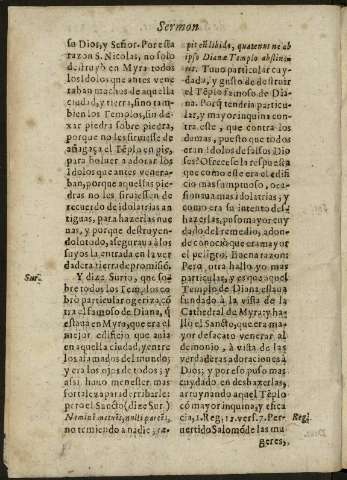 Sermon
su Dios, y Señor. Por esta
razon S. Nicolas, no solo
destruyò en Myra todos
los Idolos que antes vene
raban muchos de aquella
ciudad, y tierra, sino tam
bien los Templos, sin de-
xar piedra sobre piedra,
porque no les siruiesse de
añagaça el Tẽplo en pie,
para boluer a adorar los
Idolos que antes venera-
ban, porque aquellas pie
dras no les siruiessen de
recuerdo de idolatrias an
tiguas, para hazerlas nue
uas, y porque destruyen-
dolo todo, aseguraua à los
suyos la entrada en la ver
dadera tierra de promisiõ.
Y dize Surio, que so-
bre todos los Templos co
brò particular ogeriza cõ
tra el famoso de Diana, q̃
estaua en Myra, que era el
mejor edificio que auia
en aquella ciudad, y entre
los afamados del mundo;
y era los ojos de todos; y
assi, huuo menester mas
fortaleza para derribarle;
pero el Sancto (dize Sur.)
no temiendo a nadie; cœ-
Sur.
pit
ipso Dianæ Templo abstine-
ret. Tuuo particular cuy
dado, y gusto de destruir
el Tẽplo famoso de Dia-
na. Porq̃ tendria particu-
lar, y mayor inquina con-
tra este, que contra los
demas, puesto que todos
eran Idolos de falsos Dio
ses? Ofrecese la respuesta
que como este era el edifi
cio mas sumptuoso, oca-
sionaua mas idolatrias; y
como era su intento des-
hazerlas, puso mayor cuy
dado del remedio, adon-
de conociò que era mayor
el peligro. Buena razon:
Pero otra hallo yo mas
particular, y es que aquel
Templo de Diana estaua
fundado à la vista de la
Cathedral de Myra, y ha-
llò el Sancto, que era ma-
yor desacato venerar al
demonio, à vista de las
verdaderas adoraciones à
Dios; y por esso puso mas
cuydado en deshazerlas,
arruynando aquel Tẽplo
cõ mayor inquina, y efica
cia, 3. Reg. 11. vers. 7. Per-
uertido Salomõ de las mu
Reg.
geres,